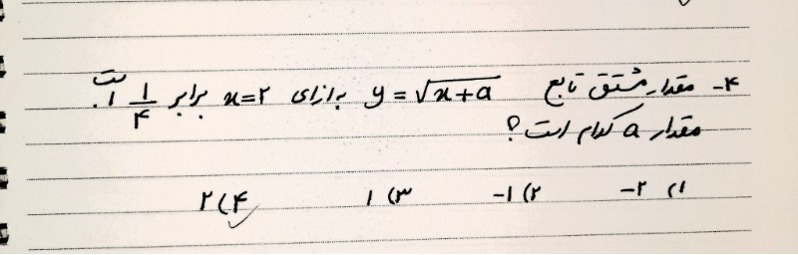 ۴- مقدار مشتق تابع y = √x+a بازای x=۲ برابر ۱/۴ است.
مقدار a کدام است؟
۱) -۲ ۲) -۱ ۳) ۱ ۴) ۲